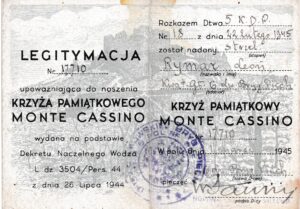 LEGITYMACJA
Nr. 17710
upoważniająca do noszenia
KRZYŻA PAMIĄTKOWEGO
MONTE CASSINO
wydana na podstawie
Dekretu Naczelnego Wodza
L. dz 3504/Pers. 44
z dnia 26 lipca 1944
Rozkazem Dtwa 5 K.D.P.
Nr 18 z dnia 22 lutego 1945
został nadany strzel.
Rymar Leon
(nazwisko i imię)
KRZYŻ PAMIĄTKOWY
MONTE CASSINO
17710
1945
pieczęć
podpis D-cy